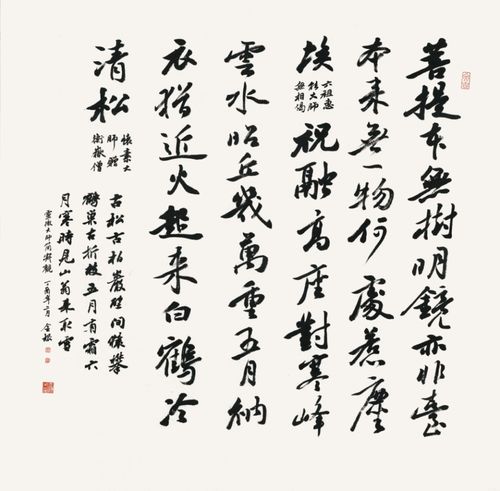 菩提本無樹明鏡亦非臺
本来無一物何處惹塵
埃
六祖惠
能大师
無相偈
祝融髙座對寒峰
雲水昭丘幾萬重五月納
衣猶近火起来白鶴冷
清松
懷素大
师贈
衡嶽僧
古松古柏巖壁間猿攀
鶴巢古折枝五月有霜六
月寒時見山翁来取雪
靈澈大师簡寂觀 丁酉年二月